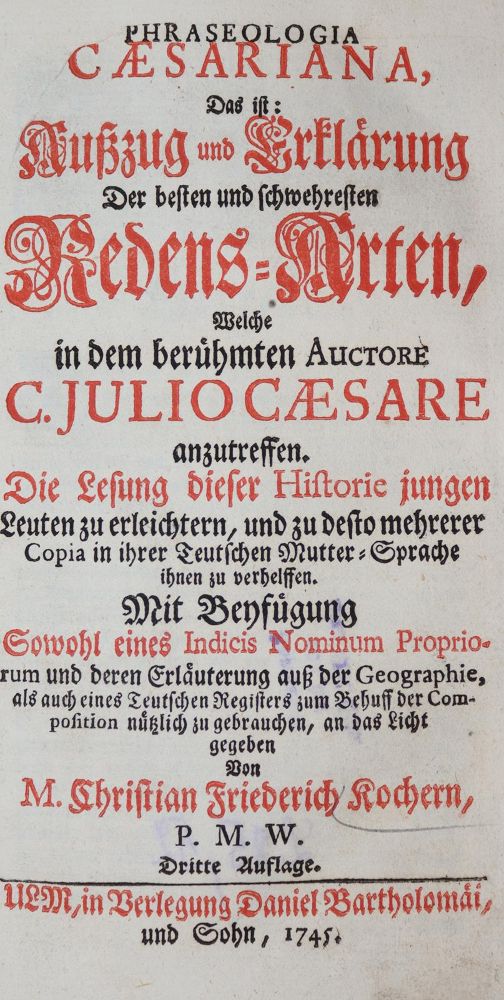 PHRASEOLOGIA
CÆSARIANA,
Das ist:
Außzug und Erklärung
Der besten und schwehresten
Redens-Arten,
Welche
in dem berühmten AUCTORE
C. JULIO CÆSARE
anzutreffen.
Die Lesung dieser Historie jungen
Leuten zu erleichtern, und zu desto mehrerer
Copia in ihrer Teutschen Mutter-Sprache
ihnen zu verhelffen.
Mit Beyfügung
Sowohl eines Indicis Nominum Proprio-
rum und deren Erläuterung auß der Geographie,
als auch eines Teutschen Registers zum Behuff der Com-
position nützlich zu gebrauchen, an das Licht
gegeben
Von
M. Christian Friederich Kochern,
P. M. W.
Dritte Auflage.
ULM, in Verlegung Daniel Bartholomäi,
und Sohn, 1745.